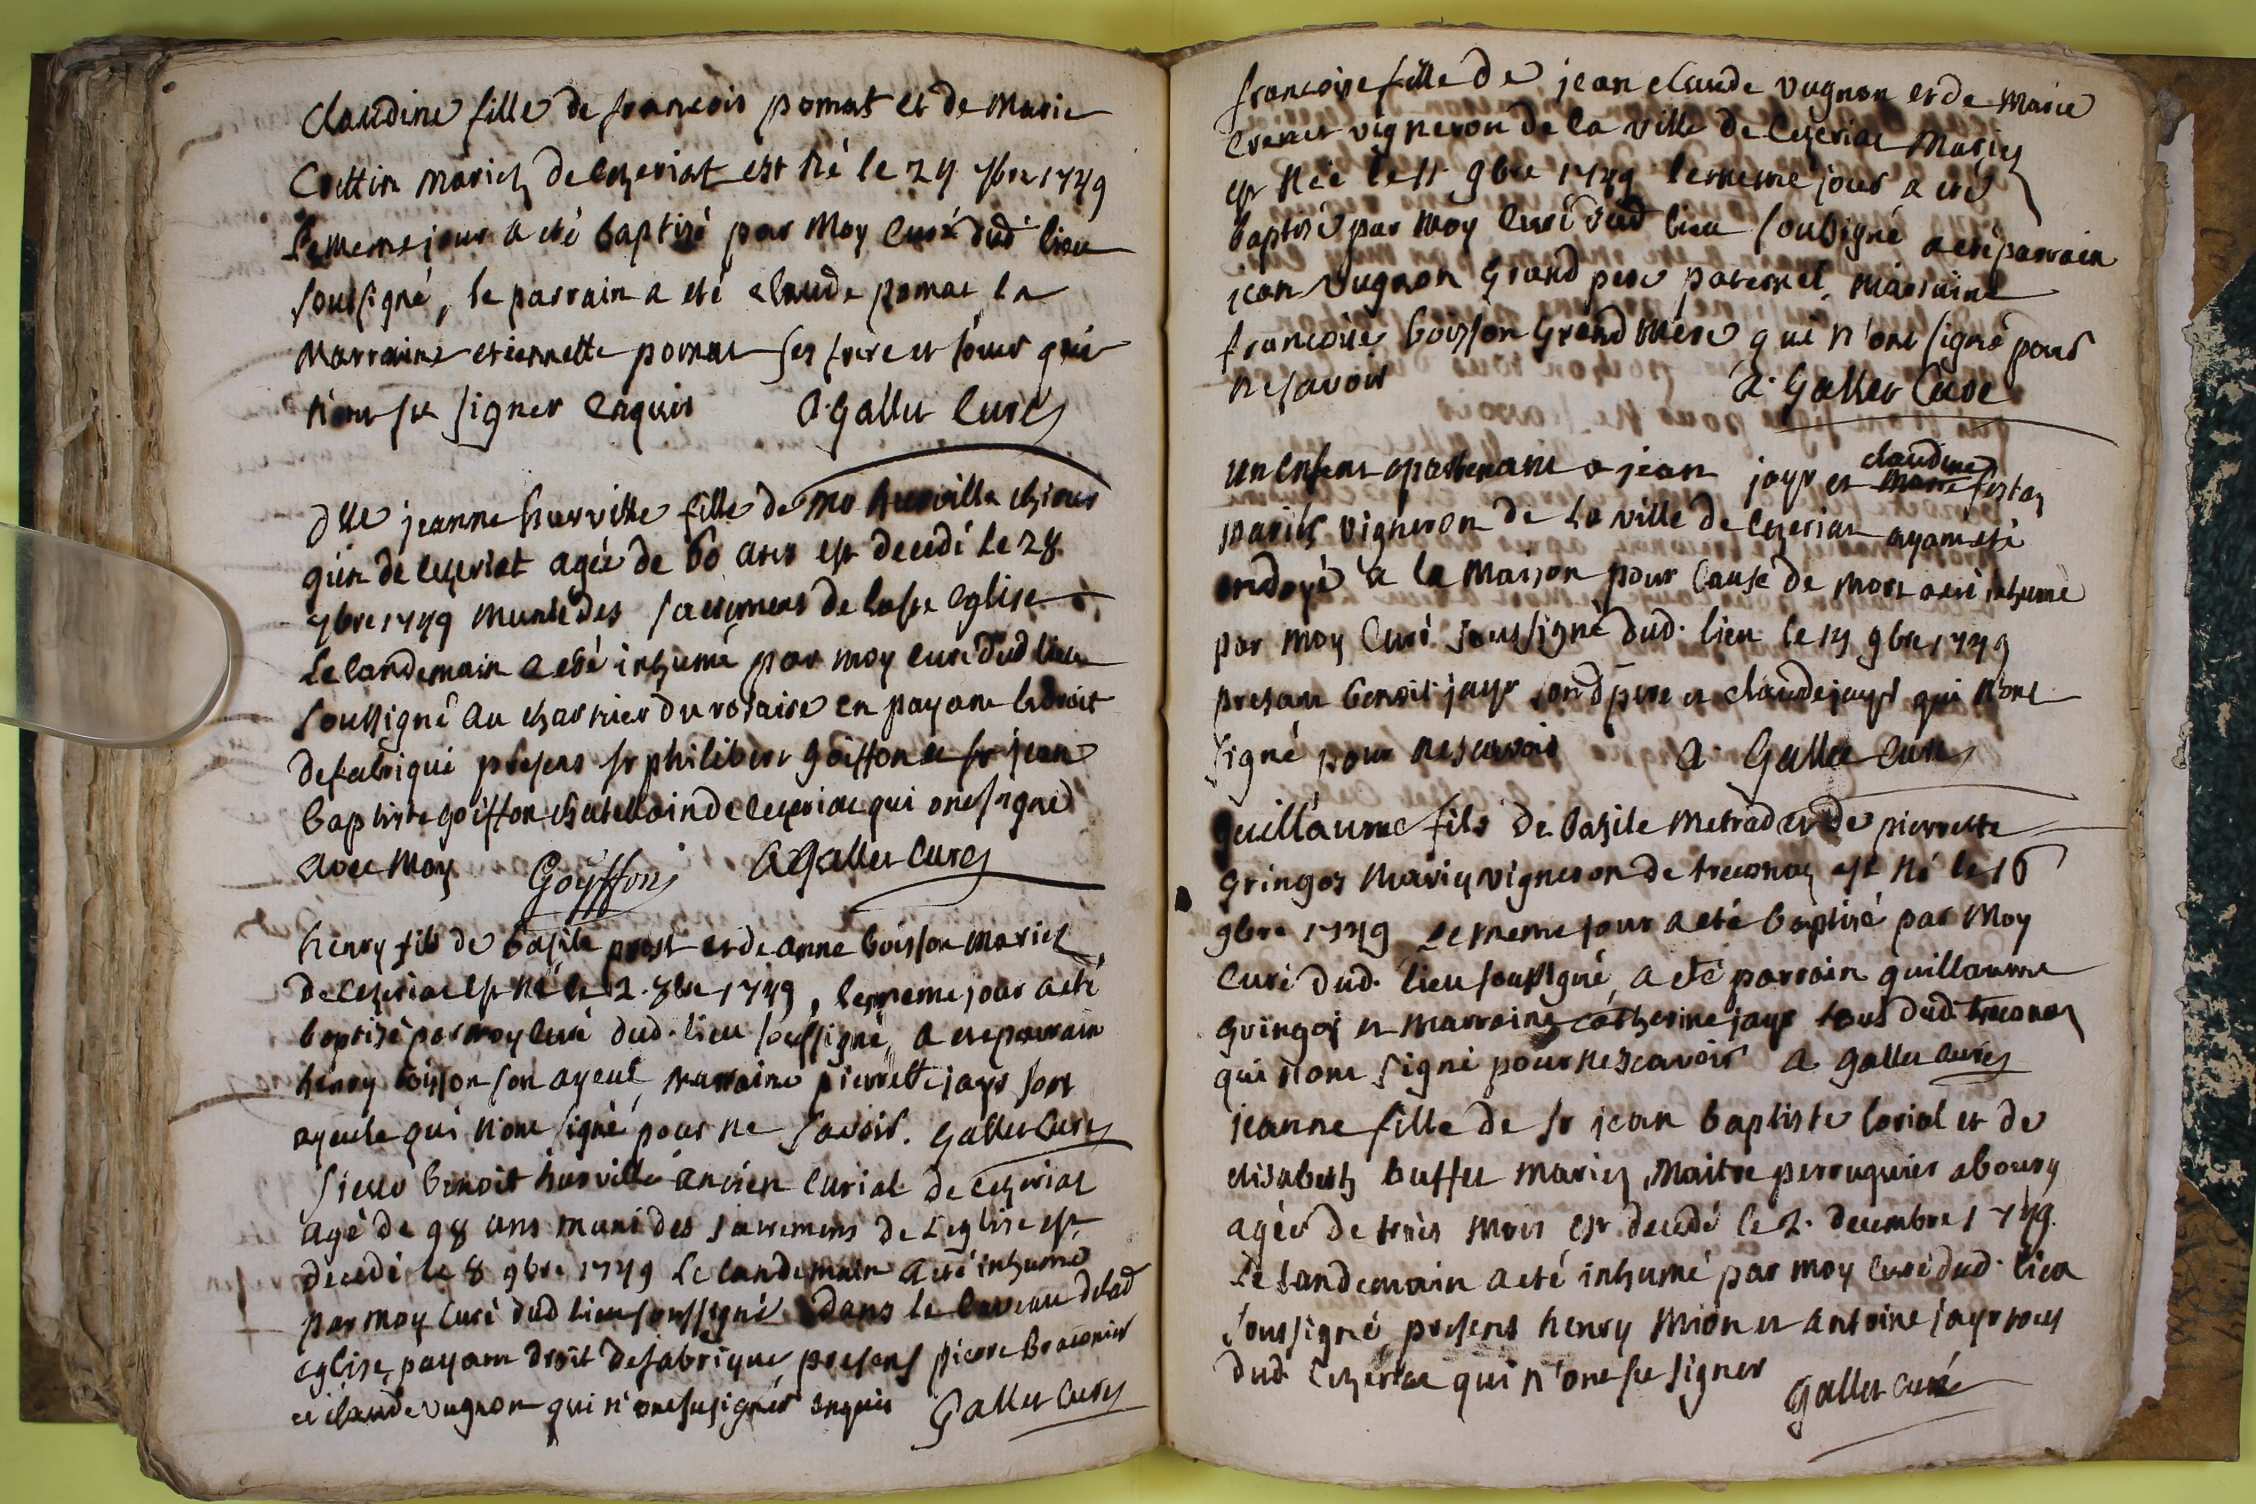 Claudine fille de francois pomat et de Marie
Cottin Mariez de Cezeriat est né le 24 7bre 1749
le meme jour a eté baptizé par Moy Curé dud lieu
soussigné, le parrain a eté claude pomat la
Marraine etiennette pomat ses frere et soeur qui
n'ont su signer enquis A Gallet Curé
Dlle jeanne hurville fille de Mr hurville chirur
gien de Cezeriat agée de 60 ans est decedé le 28
7bre 1749 munie des sacremens de la ste Eglise
le landemain a eté inhumé par moy curé dud lieu
soussigné au charnier du rosaire en payant le droit
de fabrique presens sr philibert goiffon et sr jean
baptiste goiffon chatellain de Cezeriat qui ont signé
avec Moy Goÿffon A Gallet Curé
henry fils de basile prost et de anne boisson Mariez
de Cezeriat est né le 2. 8bre 1749, le meme jour a eté
baptizé par moy Curé dud. lieu soussigné, a eté parrain
henry boisson son ayeul, marraine pierrette jayr son
ayeule qui n'ont signé pour ne savoir. Gallet Curé
sieur benoit hurville ancien Curial de Cezeriat
agé de 98 ans muni des sacremens de L'eglise est
decedé le 8 9bre 1749 Le landemain a eté inhumé
par moy Curé dud lieu soussigné dans le Caveau de lad
eglise, payant droit de fabrique, presens pierre Braconier
et claude vugnon qui n'ont su signer enquis Gallet Curé
francoise fille de jean claude vugnon et de Marie
vigneron de la ville de Cezeriat Mariez
est née le 11 9bre 1749 le meme jour a eté
baptisé par Moy Curé dud lieu soussigné a eté parrain
jean vugnon Grand pere paternel, marraine
francoise boisson Grand Mere qui n'ont signé pour
ne savoir A. Gallet Curé
un enfant apartenant a jean jayr et claudine
Mariez vigneron de la ville de Cezeriat ayant eté
ondoyé a la Maison pour Cause de Mort a eté inhumé
par Moy Curé soussigné dud. lieu le 14 9bre 1749
present benoit jayr Grand pere et claude jayr qui n'ont
signé pour ne savoir A. Gallet Curé
guillaume fils de bazile Metrad et de pierrette
gringoz Mariez vigneron de treconaz est né le 16
9bre 1749 le meme jour a eté baptisé par Moy
Curé dud. lieu soussigné, a eté parrain guillaume
gringoz et Marraine catherine jayr tous dud. treconaz
qui n'ont signé pour ne scavoir A Gallet Curé
jeanne fille de sr jean baptiste loriol et de
elisabeth buffet Mariez, Maitre perruquier a bourg
agée de trois Mois est decedé le 2. decembre 1749.
le landemain a eté inhumé par moy Curé dud. lieu
soussigné, presens henry Mion et antoine jayr tous
dud. Cezeriat qui n'ont su signer Gallet Curé